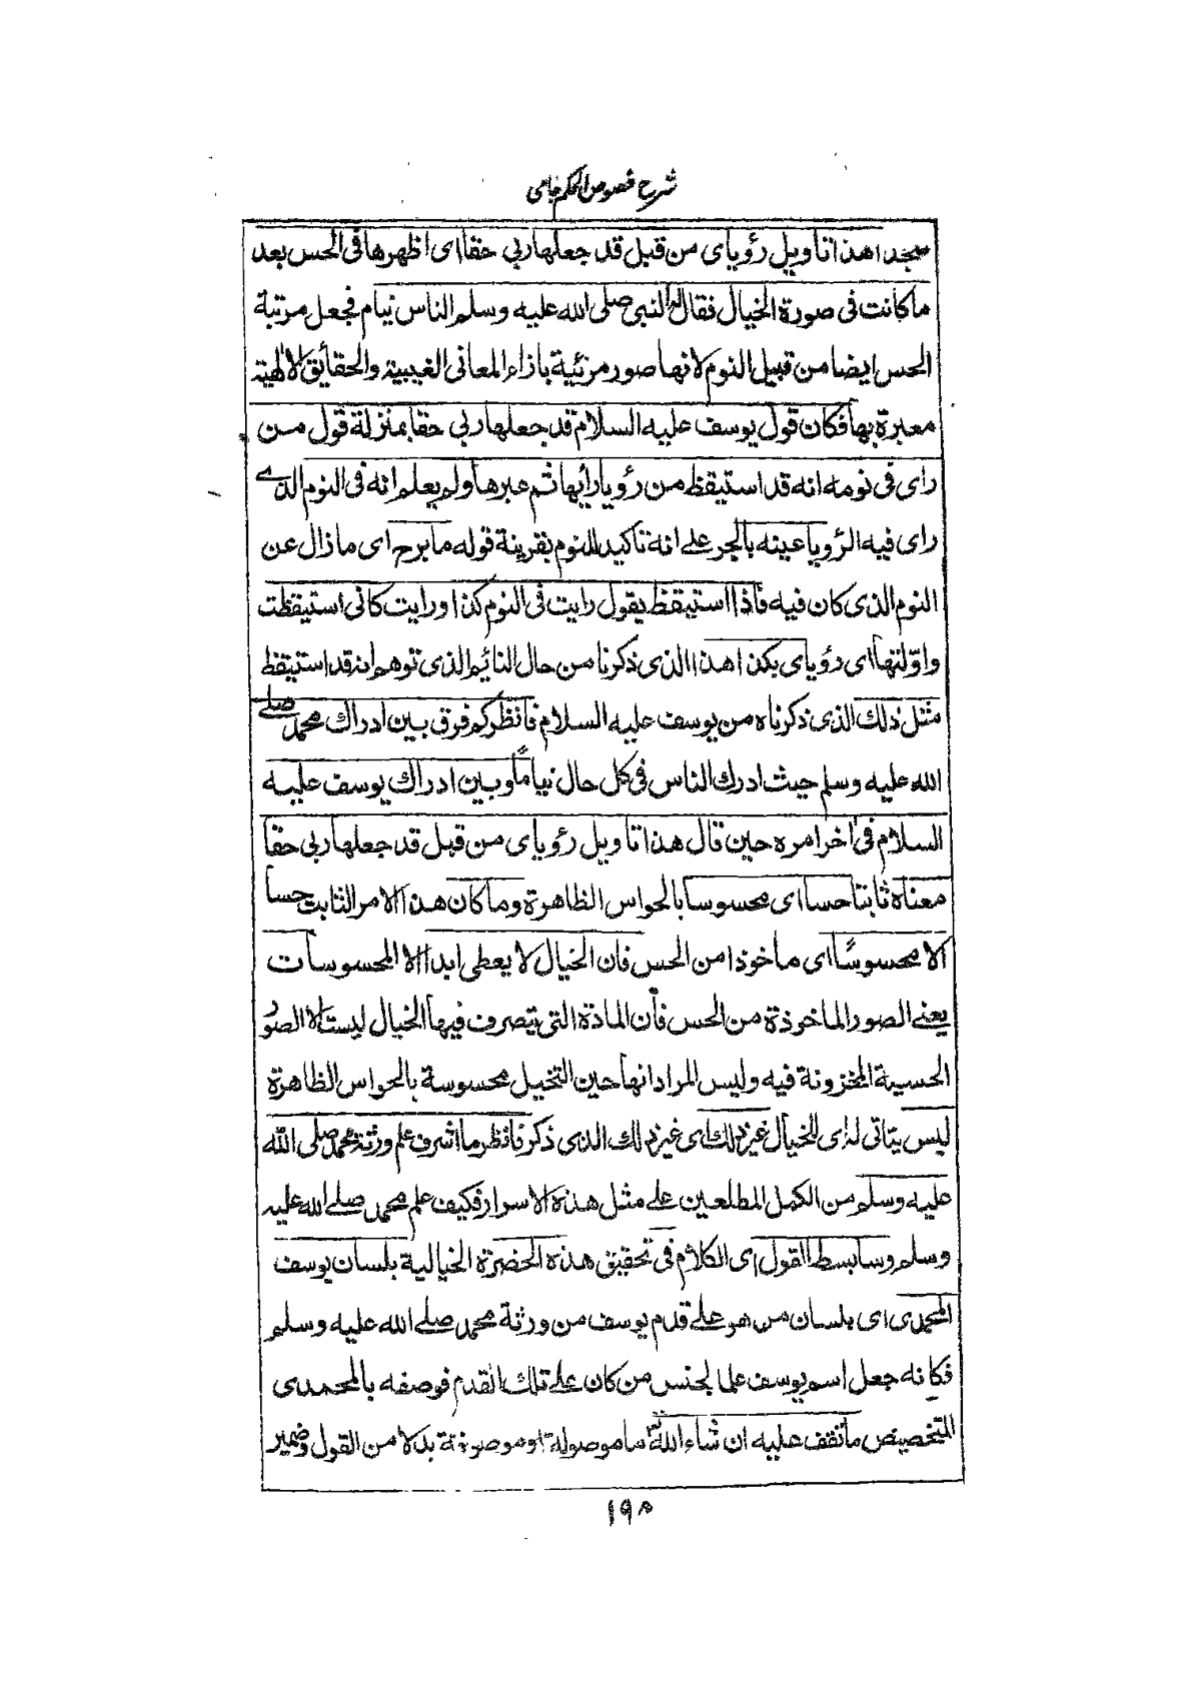 شرح فصوص الحكم جامی
سجدا هذا تاويل رؤياى من قبل قد جعلها ربى حقا اى اظهرها فى الحس بعد
ما كانت فى صورة الخيال فقال له النبى صلى الله عليه وسلم الناس نيام فجعل مرتبة
الحس ايضا من قبيل النوم لانها صور مرئية بازاء المعانى الغيبية والحقائق الالٰهية
معبرة بها فكان قول يوسف عليه السلام قد جعلها ربى حقا بمنزلة قول من
راى فى نومه انه قد استيقظ من رؤيا رأيها ثم عبرها ولم يعلم انه فى النوم الذے
راى فيه الرؤيا عينه بالجر علے انه تاكيد للنوم بقرينة قوله ما برح اى ما زال عن
النوم الذى كان فيه فاذا استيقظ يقول رايت فى النوم كذا ورايت كانى استيقظت
واوّلتها اى رؤياى بكذا هذا الذى ذكرنا من حال النائم الذى توهم انه قد استيقظ
مثل ذلك الذى ذكرناه من يوسف عليه السلام فانظر كم فرق بين ادراك محمد صلے
الله عليه وسلم حيث ادرك الناس فى كل حال نياماً وبين ادراك يوسف عليه
السلام فى اخر امره حين قال هذا تاويل رؤياى من قبل قد جعلها ربى حقا
معناه ثابتا حسا اى محسوسا بالحواس الظاهرة وما كان هذا الامر الثابت حسا
الا محسوسًا اى ماخوذا من الحس فان الخيال لا يعطى ابدا الا المحسوسات
يعنے الصور الماخوذة من الحس فأن المادة التى يتصرف فيها الخيال ليست الا الصور
الحسية المخزونة فيه وليس المراد انها حين التخيل محسوسة بالحواس الظاهرة
ليس يتاتى له اى للخيال غير ذلك اى غير ذلك الذى ذكر فانظر ما اشرف علم ورثة محمد صلى الله
عليه وسلم من الكمل المطلعين علے مثل هذه الاسرار فكيف علم محمد صلے الله عليه
وسلم وسابسط القول اى الكلام فى تحقيق هذه الحضرة الخيالية بلسان يوسف
المحمدى اى بلسان من هو علے قدم يوسف من ورثة محمد صلے الله عليه وسلم
فكانه جعل اسم يوسف علما لجنس من كان علے تلك القدم فوصفه بالمحمدى
للتخصيص ما تقف عليه ان شاء الله ما موصولة او موصوفة بدلا من القول وضمير
١٩٨